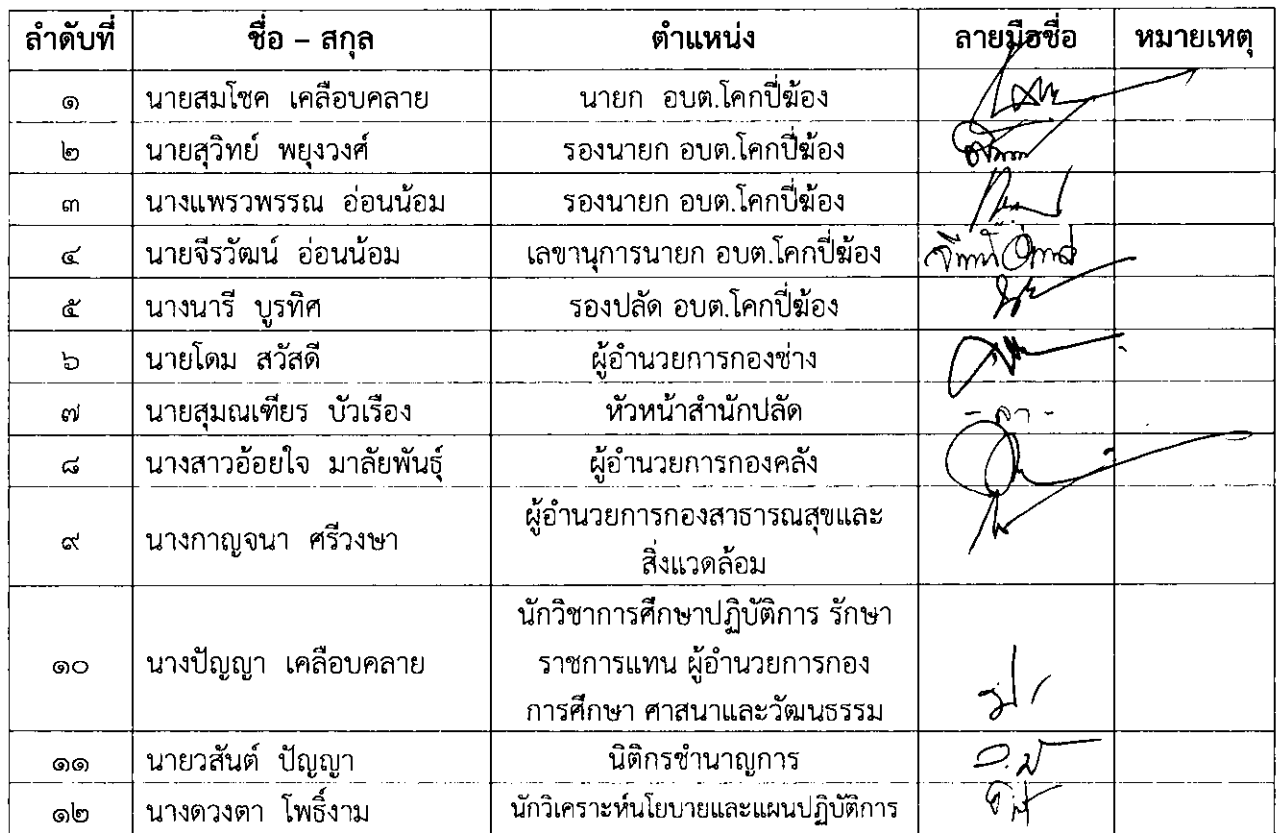 ลำดับที่ ชื่อ – สกุล ตำแหน่ง ลายมือชื่อ หมายเหตุ
๑ นายสมโชค เคลือบคลาย นายก อบต.โคกปี่ฆ้อง
๒ นายสุวิทย์ พยุงวงศ์ รองนายก อบต.โคกปี่ฆ้อง
๓ นางแพรวพรรณ อ่อนน้อม รองนายก อบต.โคกปี่ฆ้อง
๔ นายจีรวัฒน์ อ่อนน้อม เลขานุการนายก อบต.โคกปี่ฆ้อง
๕ นางนารี บูรทิศ รองปลัด อบต.โคกปี่ฆ้อง
๖ นายโดม สวัสดี ผู้อำนวยการกองช่าง
๗ นายสุมณเฑียร บัวเรือง หัวหน้าสำนักปลัด - ลา -
๘ นางสาวอ้อยใจ มาลัยพันธุ์ ผู้อำนวยการกองคลัง
๙ นางกาญจนา ศรีวงษา ผู้อำนวยการกองสาธารณสุขและ
สิ่งแวดล้อม
๑๐ นางปัญญา เคลือบคลาย นักวิชาการศึกษาปฏิบัติการ รักษา
ราชการแทน ผู้อำนวยการกอง
การศึกษา ศาสนาและวัฒนธรรม
๑๑ นายวสันต์ ปัญญา นิติกรชำนาญการ
๑๒ นางดวงตา โพธิ์งาม นักวิเคราะห์นโยบายและแผนปฏิบัติการ